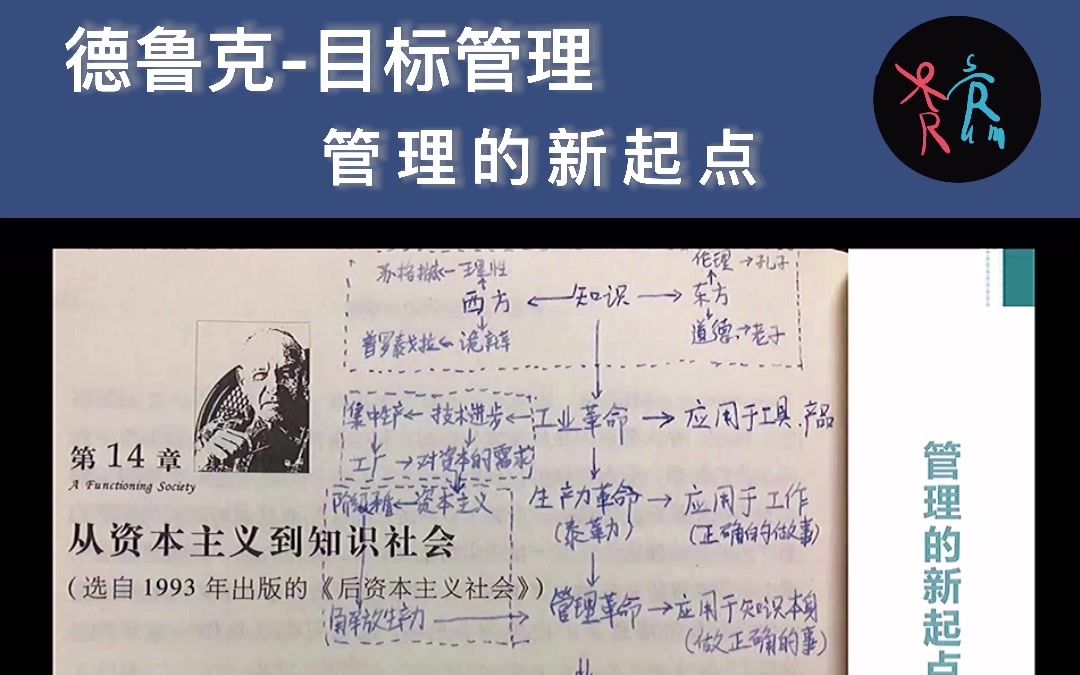 德鲁克-目标管理
管理的新起点
RRSRum
伦理→孔子
苏格拉底←理性
西方←知识→东方
普罗泰戈拉←诡辩
道德→老子
集中生产←技术进步←工业革命→应用于工具.产品
工厂→对资本的需求
第14章
A Functioning Society
资本主义
生产力革命→应用于工作
(泰勒)
(正确的做事)
从资本主义到知识社会
(选自1993年出版的《后资本主义社会》)
解放生产力→管理革命→应用于知识本身
(做正确的事)
管理的新起点